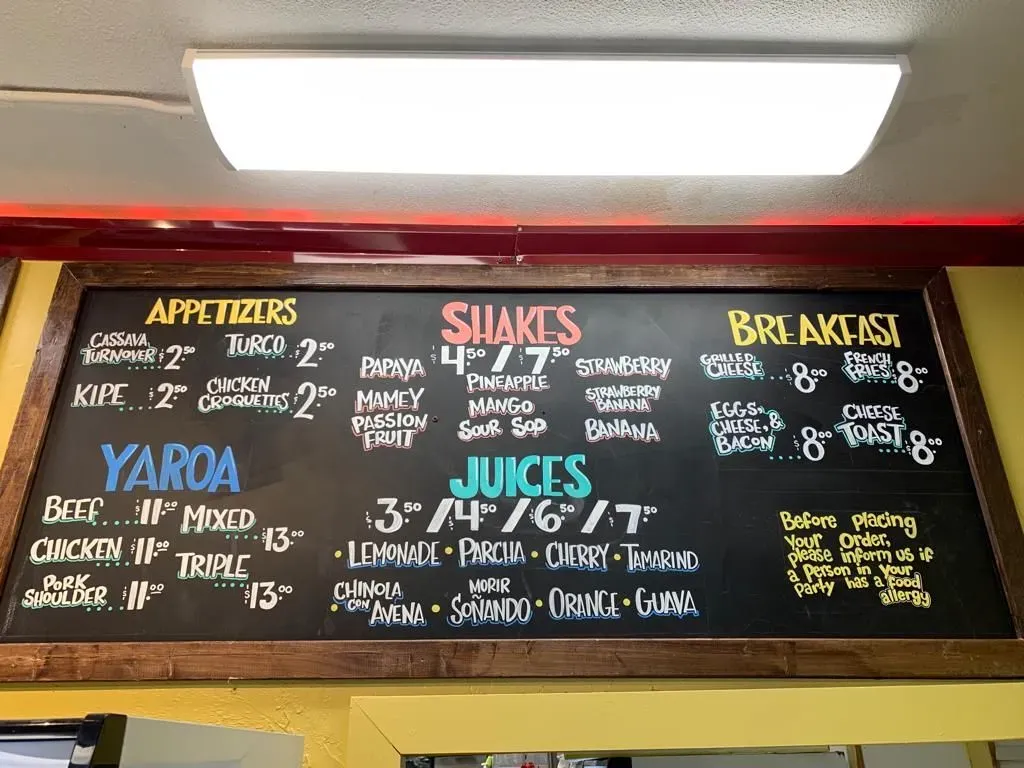 APPETIZERS
CASSAVA
TURNOVER $2.50
TURCO $2.50
KIPE $2.50
CHICKEN
CROQUETTES $2.50
YAROA
BEEF $11.00
CHICKEN $11.00
PORK
SHOULDER $11.00
MIXED $13.00
TRIPLE $13.00
SHAKES
$4.50 / $7.50
PAPAYA
MAMEY
PASSION
FRUIT
PINEAPPLE
MANGO
SOUR SOP
STRAWBERRY
STRAWBERRY
BANANA
BANANA
JUICES
$3.50 / $4.50 / $6.50 / $7.50
• LEMONADE • PARCHA • CHERRY • TAMARIND
CHINOLA
CON
AVENA • MORIR
SOÑANDO • ORANGE • GUAVA
BREAKFAST
GRILLED
CHEESE $8.00
FRENCH
FRIES $8.00
EGGS,
CHEESE, &
BACON $8.00
CHEESE
TOAST $8.00
Before placing
your order,
please inform us if
a person in your
party has a food
allergy